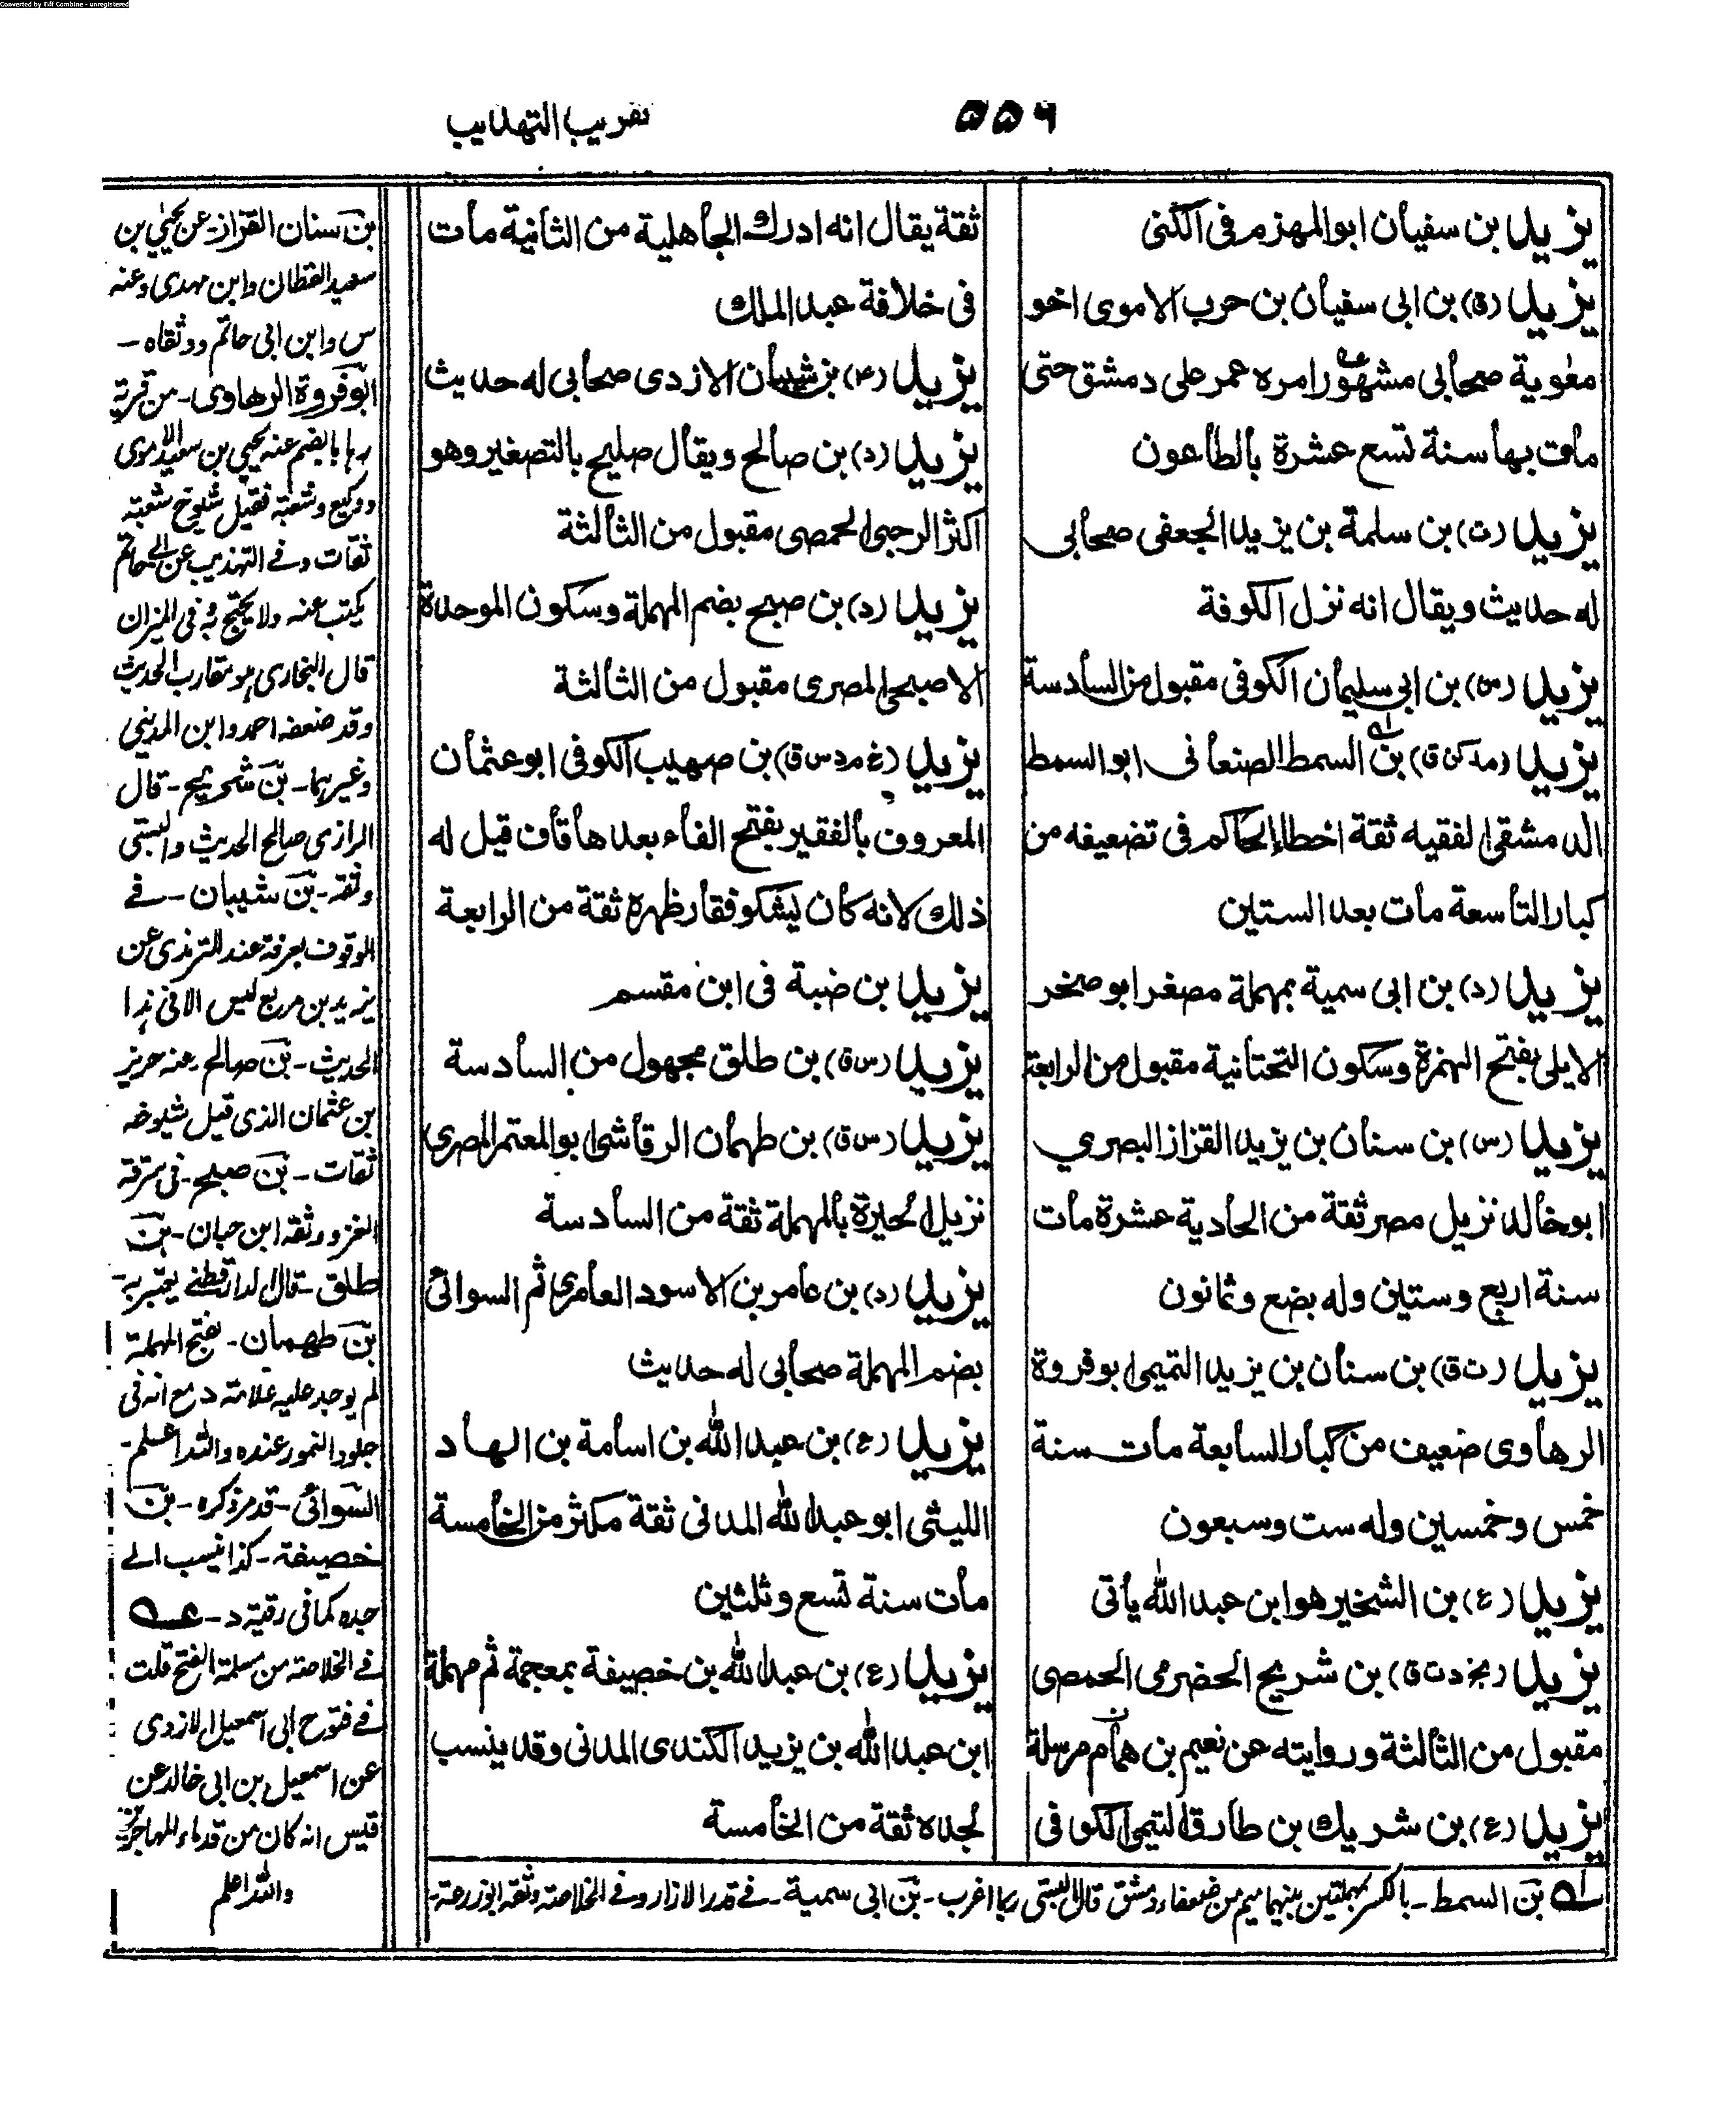 Converted by Tiff Combine - unregistered
٥٥٦
تقريب التهذيب
يزيد بن سفيان ابو المهزم في الكنى
يزيد (ق) بن ابي سفيان بن حرب الاموي اخو
معوية صحابي مشهور امره عمر على دمشق حتى
مات بها سنة تسع عشرة بالطاعون
يزيد (ت) بن سلمة بن يزيد الجعفي صحابي
له حديث ويقال انه نزل الكوفة
يزيد (س) بن ابي سليمان الكوفي مقبول من السادسة
يزيد (مد كن ق) بن السمط الصنعاني ابو السمط
الدمشقي الفقيه ثقة اخطا الحاكم في تضعيفه من
كبار التاسعة مات بعد الستين
يزيد (د) بن ابي سمية بمهملة مصغر ابو صخر
الايلي بفتح الهمزة وسكون التحتانية مقبول من الرابعة
يزيد (س) بن سنان بن يزيد القزاز البصري
ابو خالد نزيل مصر ثقة من الحادية عشرة مات
سنة اربع وستين وله بضع وثمانون
يزيد (ت ق) بن سنان بن يزيد التميمي ابو فروة
الرهاوي ضعيف من كبار السابعة مات سنة
خمس وخمسين وله ست وسبعون
يزيد (ع) بن الشخير هو ابن عبد الله يأتي
يزيد (بخ د ت ق) بن شريح الحضرمي الحمصي
مقبول من الثالثة وروايته عن نعيم بن همام مرسلة
يزيد (ع) بن شريك بن طارق التيمي الكوفي
ثقة يقال انه ادرك الجاهلية من الثانية مات
في خلافة عبد الملك
يزيد (٤) بن شيبان الازدي صحابي له حديث
يزيد (د) بن صالح ويقال صليح بالتصغير وهو
اكثر الرحبي الحمصي مقبول من الثالثة
يزيد (د) بن صبح بضم المهملة وسكون الموحدة
الاصبحي المصري مقبول من الثالثة
يزيد (غ م د س ق) بن صهيب الكوفي ابو عثمان
المعروف بالفقير بفتح الفاء بعدها قاف قيل له
ذلك لانه كان يشكو فقار ظهره ثقة من الرابعة
يزيد بن ضبة في ابن مقسم
يزيد (س ق) بن طلق مجهول من السادسة
يزيد (س ق) بن طهمان الرقاشي ابو المعتمر البصري
نزيل الحيرة بالمهملة ثقة من السادسة
يزيد (د) بن عامر بن الاسود العامري ثم السوائي
بضم المهملة صحابي له حديث
يزيد (ع) بن عبد الله بن اسامة بن الهاد
الليثي ابو عبد الله المدني ثقة مكثر من الخامسة
مات سنة تسع وثلثين
يزيد (ع) بن عبد الله بن خصيفة بمعجمة ثم مهملة
ابن عبد الله بن يزيد الكندي المدني وقد ينسب
لجده ثقة من الخامسة
بن سنان القزاز عن يحيي بن
سعيد القطان وابن مهدي وعنه
س وابن ابي حاتم ووثقاه -
ابو فروة الرهاوي - من قرية
رها بالضم عنه يحيي بن سعيد الاموي
ووكيع وشعبة فقيل شيوخ شعبة
ثقات وفي التهذيب عن ابي حاتم
يكتب عنه ولا يحتج به في الميزان
قال البخاري هو مقارب الحديث
وقد ضعفه احمد وابن المديني
وغيرهما - بن شريح - قال
الرازي صالح الحديث والبستي
وثقه - بن شيبان - في
الوقوف بعرفة عند الترمذي عن
يزيد بن مربع ليس الا في هذا
الحديث - بن صالح - عنه حريز
بن عثمان الذي قيل شيوخه
ثقات - بن صبح - في سرقة
الغزو وثقه ابن حبان - بن
طلق - قال الدارقطني يعتبر به -
بن طهمان - بفتح المهملة
لم يوجد عليه علامة د مع انه في
جلود النمور عنده والله اعلم -
السوائي - قد مر ذكره - بن
خصيفة - كذا نسب الى
جده كما في رقية د - عه
في الخلاصة من مسلمة الفتح قلت
في فتوح ابي اسمعيل الازدي
عن اسمعيل بن ابي خالد عن
قيس انه كان من قدماء المهاجرين
والله اعلم
بن السمط - بالكسر بمهملتين بينهما ميم من ضعفاء دمشق قال البستي ربما اغرب - بن ابي سمية - في قدر الازار وفي الخلاصة وثقه ابو زرعة -